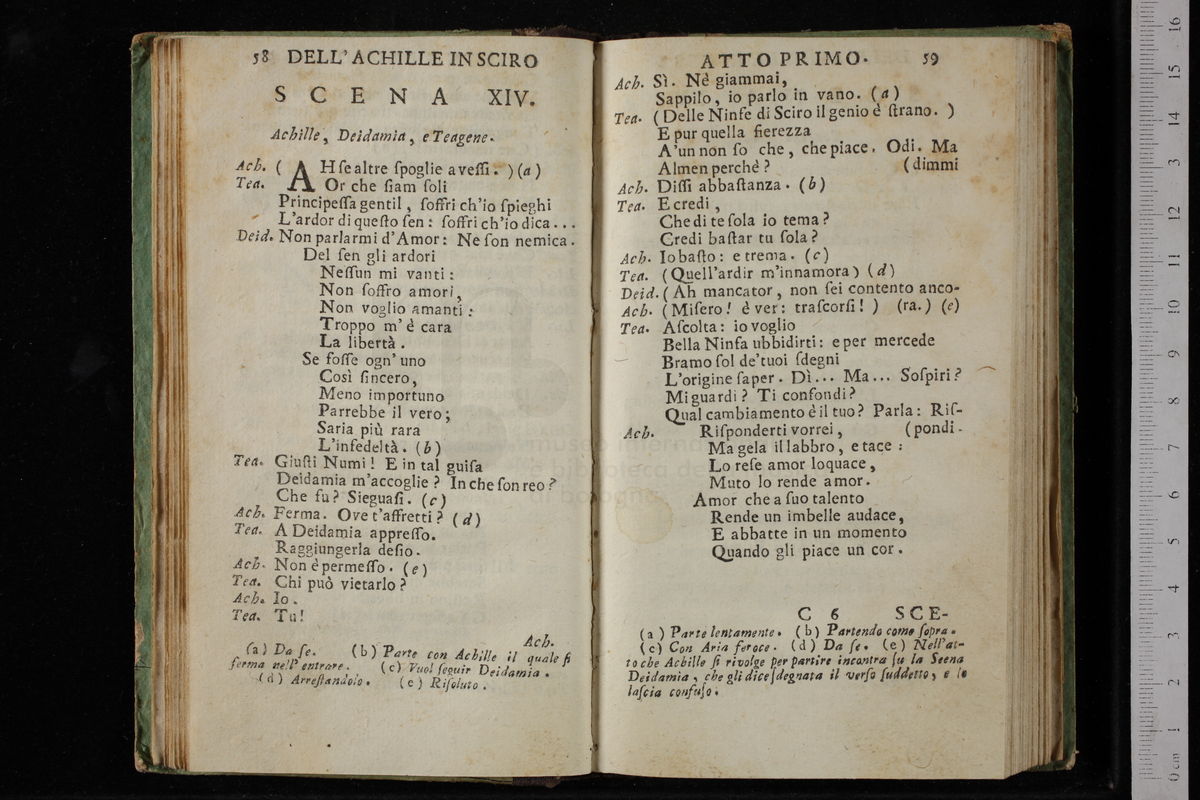 58 DELL'ACHILLE IN SCIRO
SCENA XIV.
Achille, Deidamia, e Teagene.
Ach. ( AH ſe altre ſpoglie aveſſi. ) (a)
Tea. Or che ſiam ſoli
Principeſſa gentil, ſoffri ch'io ſpieghi
L'ardor di queſto ſen: ſoffri ch'io dica...
Deid. Non parlarmi d'Amor: Ne ſon nemica.
Del ſen gli ardori
Neſſun mi vanti:
Non ſoffro amori,
Non voglio amanti:
Troppo m'è cara
La libertà.
Se foſſe ogn'uno
Così ſincero,
Meno importuno
Parrebbe il vero;
Saria più rara
L'infedeltà. (b)
Tea. Giuſti Numi! E in tal guiſa
Deidamia m'accoglie? In che ſon reo?
Che fu? Sieguaſi. (c)
Ach. Ferma. Ove t'affretti? (d)
Tea. A Deidamia appreſſo.
Raggiungerla deſio.
Ach. Non è permeſſo. (e)
Tea. Chi può vietarlo?
Ach. Io.
Tea. Tu!
Ach.
(a) Da ſe. (b) Parte con Achille il quale ſi
ferma nell'entrare. (c) Vuol ſeguir Deidamia.
(d) Arreſtandolo. (e) Riſoluto.
ATTO PRIMO. 59
Ach. Sì. Nè giammai,
Sappilo, io parlo in vano. (a)
Tea. (Delle Ninfe di Sciro il genio è ſtrano. )
E pur quella fierezza
A'un non ſo che, che piace. Odi. Ma
Almen perchè? (dimmi
Ach. Diſſi abbaſtanza. (b)
Tea. E credi,
Che di te ſola io tema?
Credi baſtar tu ſola?
Ach. Io baſto: e trema. (c)
Tea. (Quell'ardir m'innamora) (d)
Deid. ( Ah mancator, non ſei contento anco-
Ach. (Miſero! è ver: traſcorſi! ) (ra.) (e)
Tea. Aſcolta: io voglio
Bella Ninfa ubbidirti: e per mercede
Bramo ſol de'tuoi ſdegni
L'origine ſaper. Dì... Ma... Soſpiri?
Mi guardi? Ti confondi?
Qual cambiamento è il tuo? Parla: Riſ-
Ach. Riſponderti vorrei, (pondi.
Ma gela il labbro, e tace:
Lo reſe amor loquace,
Muto lo rende amor.
Amor che a ſuo talento
Rende un imbelle audace,
E abbatte in un momento
Quando gli piace un cor.
C 6 SCE-
(a) Parte lentamente. (b) Partendo come ſopra.
(c) Con Aria feroce. (d) Da ſe. (e) Nell'at-
to che Achille ſi rivolge per partire incontra ſu la Scena
Deidamia, che gli dice ſdegnata il verſo ſuddetto, e lo
laſcia confuſo.